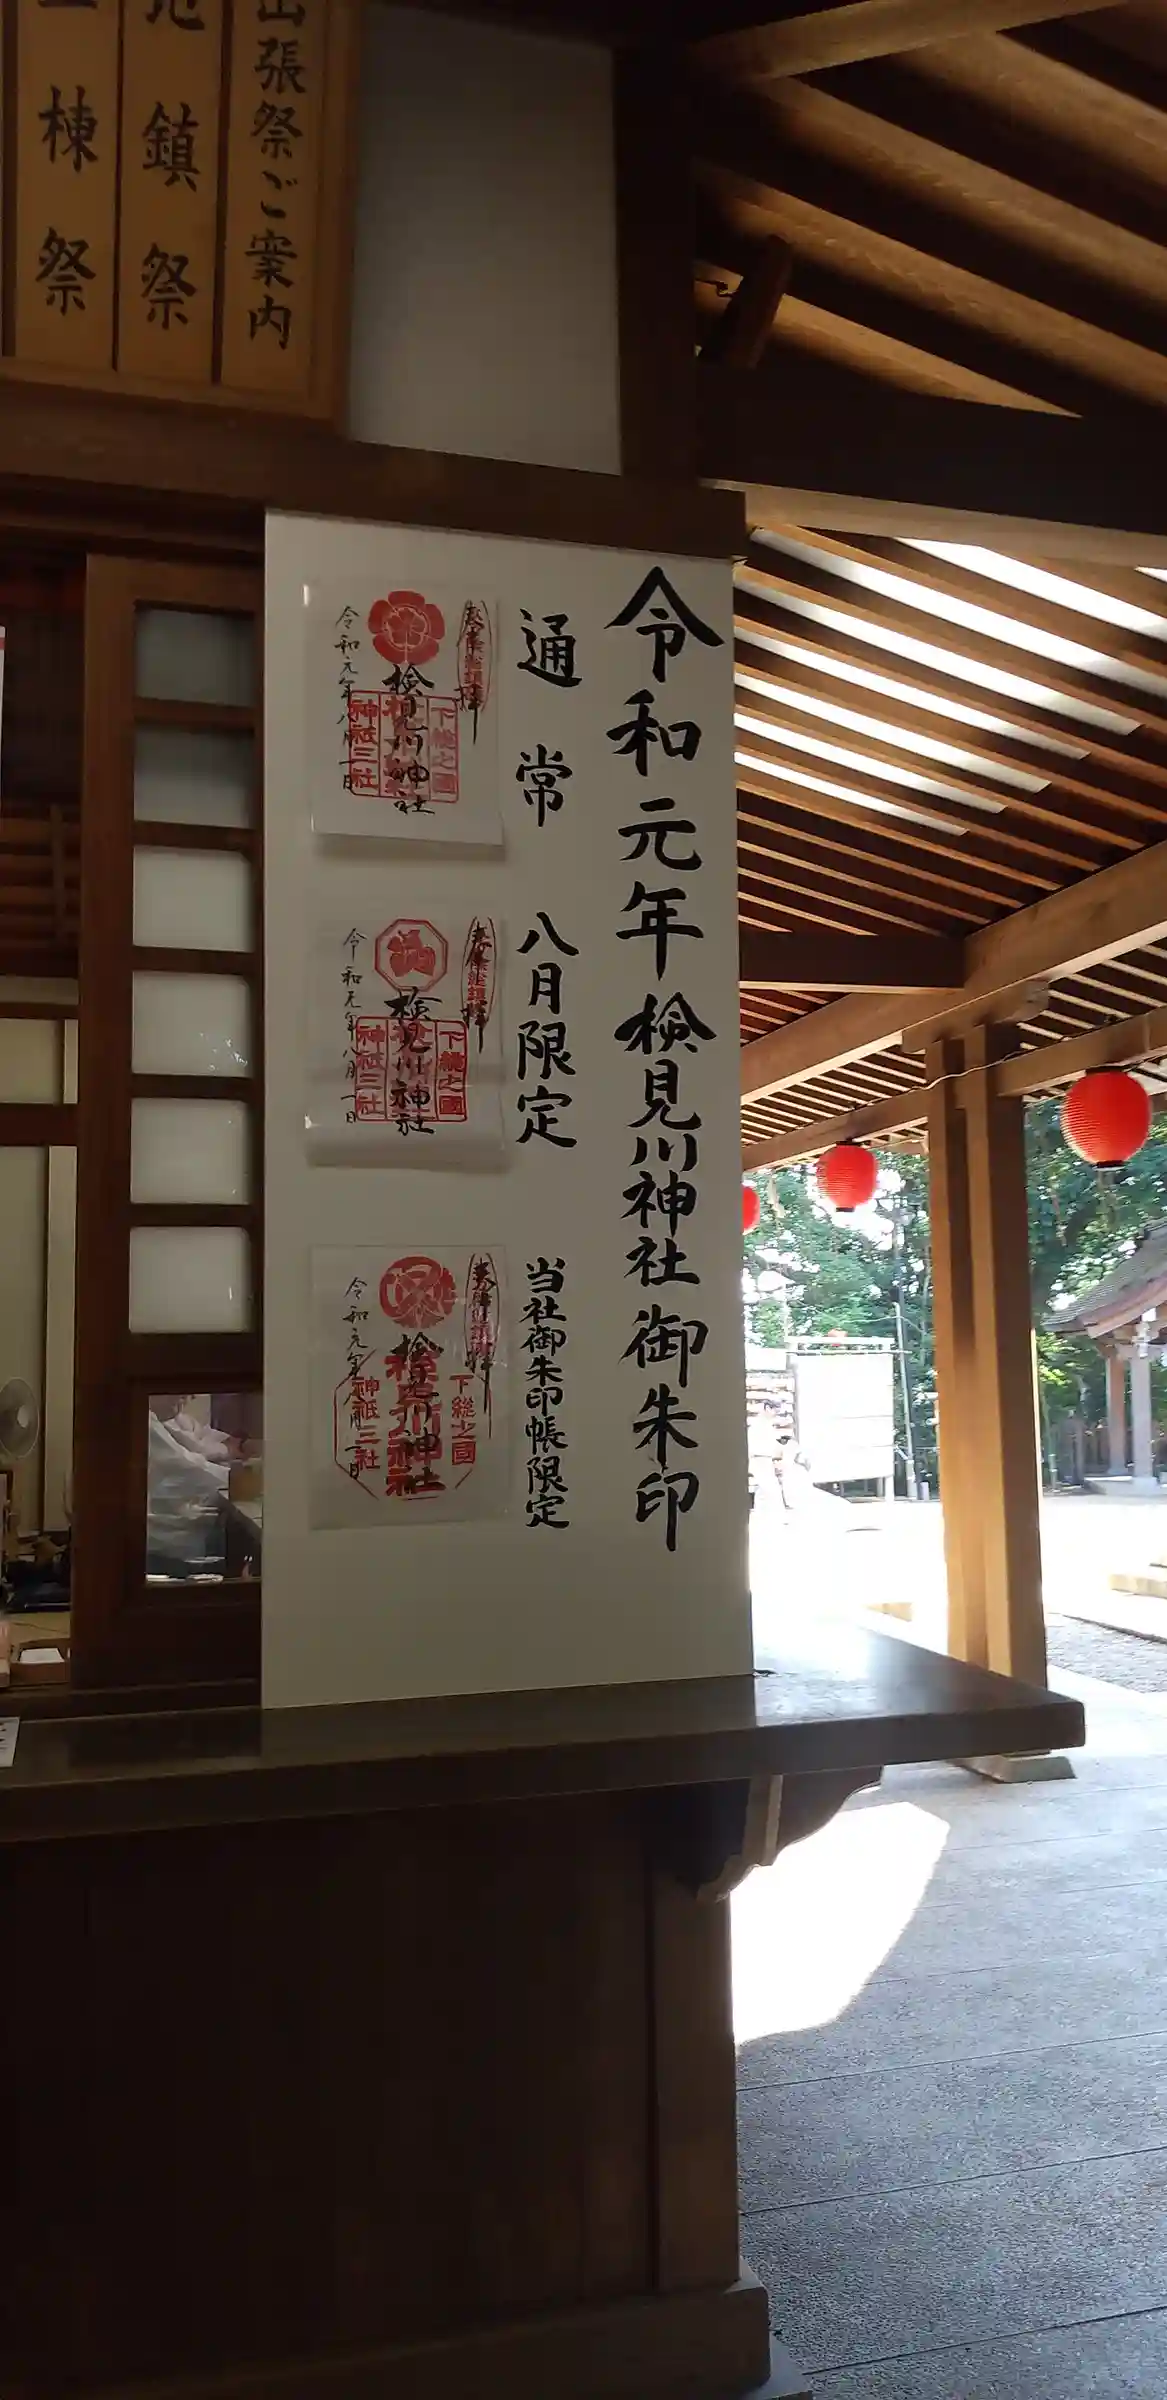 出張祭ご案内
地鎮祭
棟祭
令和元年検見川神社御朱印
通常
八月限定
当社御朱印帳限定
奉拝
下總之國
検見川神社
神祇三社
令和元年八月一日
奉拝
下總之國
検見川神社
神祇三社
令和元年八月一日
奉拝
下総之國
検見川神社
神祇三社
令和元年八月一日